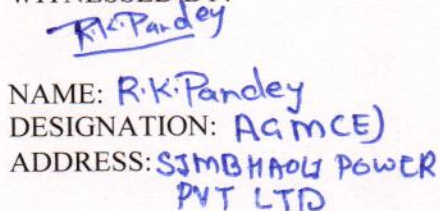 WITNESSED BY:
R.K.Pandey
NAME: R.K.Pandey
DESIGNATION: AGMCE)
ADDRESS: SIMBHAOLI POWER
PVT LTD